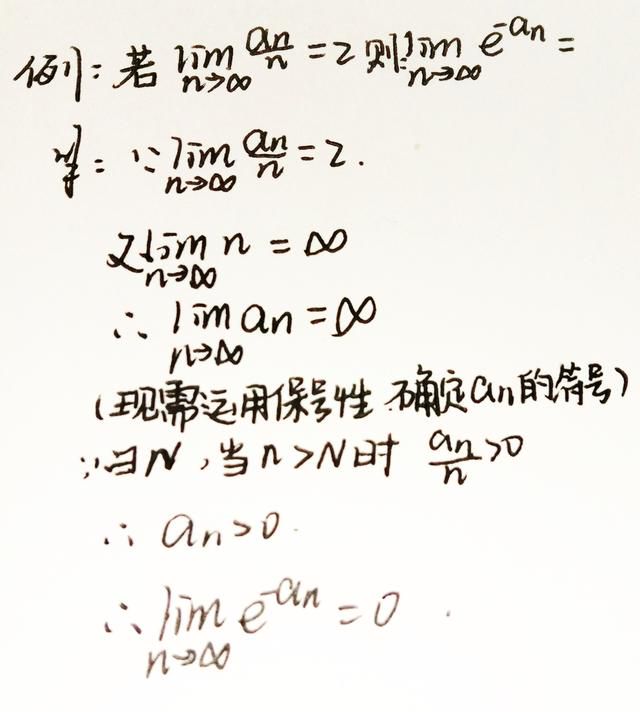 例: 若 lim n→∞ an/n = 2 则: lim n→∞ e^-an =
解: ∵ lim n→∞ an/n = 2.
又 lim n→∞ n = ∞
∴ lim n→∞ an = ∞
(现需运用保号性.确定an的符号)
∵ ∃N, 当 n>N时 an/n >0
∴ an>0.
∴ lim n→∞ e^-an = 0.